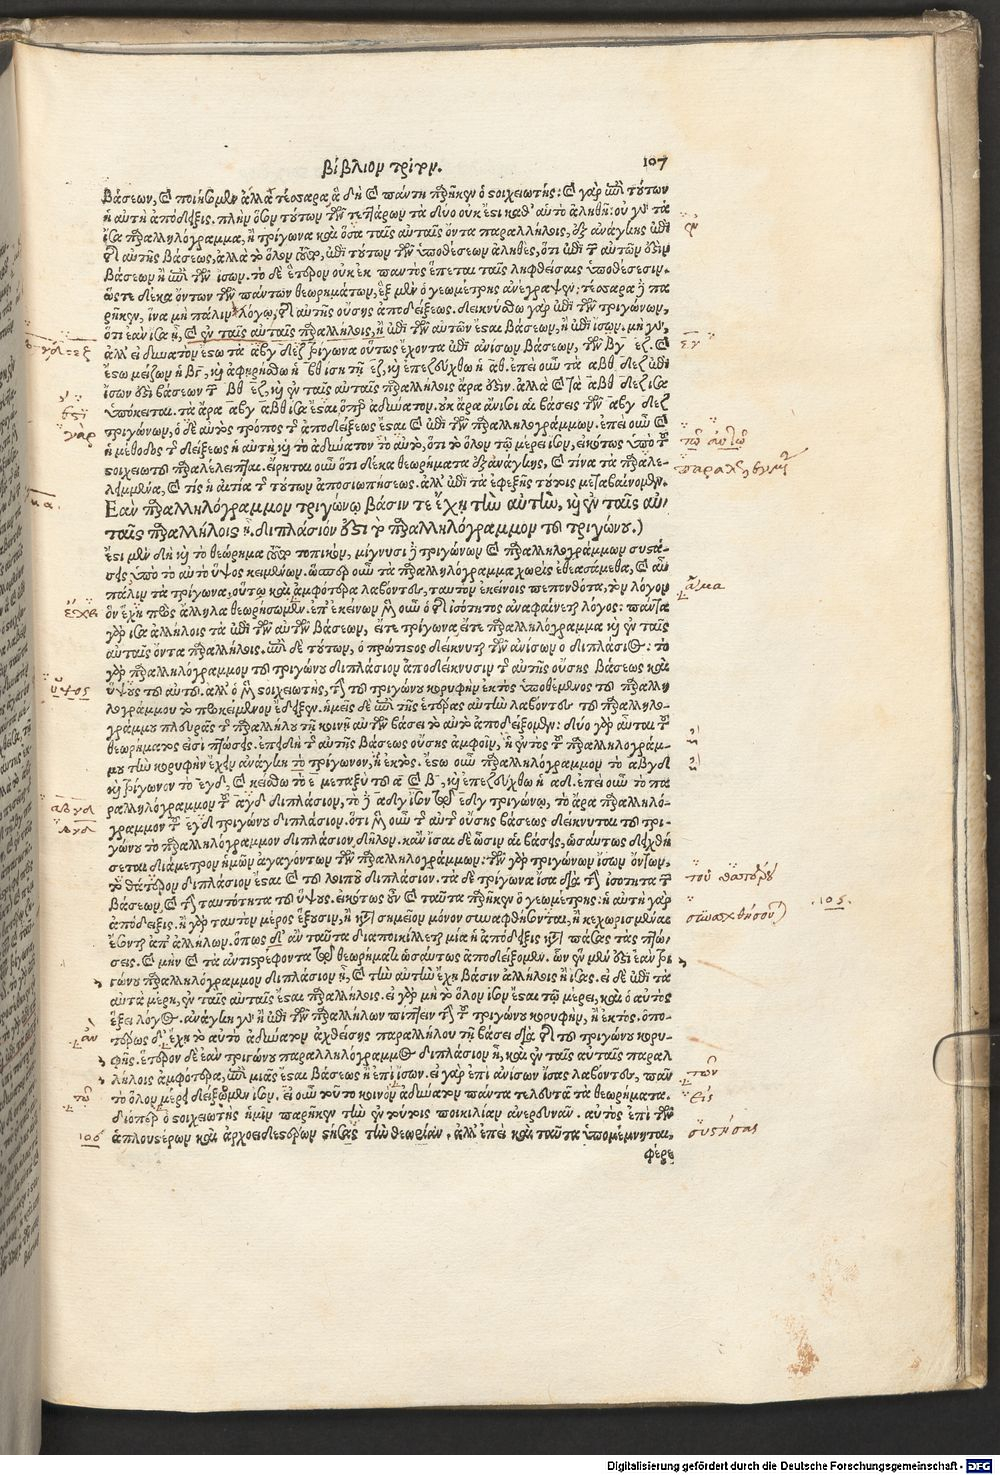 βίβλιον τρίτον.
107
βάσεων, καὶ ποιήσωμεν ἀλλὰ τέσσαρα, ἃ δὴ καὶ πάντη παρῆκεν ὁ στοιχειωτής: καὶ γὰρ ἐπὶ τούτων
ἡ αὐτὴ ἀπόδειξις. πλὴν ὅσον τούτων τῶν τεττάρων τὰ δύο οὐκ ἔστι καθ' αὑτὸ ἀληθῆ: οὐ γὰρ τὰ
ἴσα παραλληλόγραμμα, ἢ τρίγωνα καὶ ὅσα ταῖς αὐταῖς ὄντα παραλλήλοις, ἐξ ἀνάγκης ἐπὶ
τῆς αὐτῆς βάσεως, ἀλλὰ τὸ ὅλον τοῦτο, ἐπὶ τούτων τῶν ὑποθέσεων ἀληθὲς, ὅτι ἐπὶ τῶν αὐτῶν ἐστιν
βάσεων ἢ ἐπὶ τῶν ἴσων. τὸ δὲ ἕτερον οὐκ ἐκ παντὸς ἕπεται ταῖς ληφθείσαις ὑποθέσεσιν.
ὥστε δέκα ὄντων τῶν πάντων θεωρημάτων, ἓξ μὲν ὁ γεωμέτρης ἀνέγραψεν: τέσσαρα δὲ πα
ρῆκεν, ἵνα μὴ πάλιν λόγῳ, τῆς αὐτῆς οὔσης ἀποδείξεως. δεικνύσθω γὰρ ἐπὶ τῶν τριγώνων,
ὅτι ἐὰν ἴσα ᾖ, καὶ ἐν ταῖς αὐταῖς παραλλήλοις, ἢ ἐπὶ τῶν αὐτῶν ἔσται βάσεων, ἢ ἐπὶ ἴσων. μὴ γὰρ,
ἀλλ' εἰ δυνατὸν ἔστω τὰ αβγ δεζ τρίγωνα οὕτως ἔχοντα ἐπὶ ἀνίσων βάσεων, τῶν βγ εζ. καὶ
ἔστω μείζων ἡ βγ, καὶ ἀφῃρήσθω ἡ βθ ἴση τῇ εζ, καὶ ἐπεζεύχθω ἡ αθ. ἐπεὶ οὖν τὰ αβθ δεζ ἐπὶ
ἴσων ἐστὶ βάσεων τῶν βθ εζ, καὶ ἐν ταῖς αὐταῖς παραλλήλοις ἄρα ἐστίν. ἀλλὰ καὶ τὰ αβθ δεζ ἴσα
ὑπόκειται. τὰ ἄρα αβγ αβθ ἴσα ἔσται ὅπερ ἀδύνατον. οὐκ ἄρα ἄνισοι αἱ βάσεις τῶν αβγ δεζ
τριγώνων, ὁ δὲ αὐτὸς τρόπος τῆς ἀποδείξεως ἔσται καὶ ἐπὶ τῶν παραλληλογράμμων. ἐπεὶ οὖν καὶ
ἡ μέθοδος τῆς δείξεως ἡ αὐτὴ, καὶ τὸ ἀδύνατον τὸ αὐτὸ, ὅτι τὸ ὅλον τῷ μέρει ἴσον, εἰκότως ὑπὸ τοῦ
στοιχειωτοῦ παραλέλειπται. εἴρηται οὖν ὅτι δέκα θεωρήματα ἐξ ἀνάγκης, καὶ τίνα τὰ παραλε-
λειμμένα, καὶ τίς ἡ αἰτία τῆς τούτων ἀποσιωπήσεως. ἀλλ' ἐπὶ τὰ ἐφεξῆς τούτοις μεταβαίνομεν.
Ἐὰν παραλληλόγραμμον τριγώνῳ βάσιν τε ἔχῃ τὴν αὐτὴν, καὶ ἐν ταῖς αὐ-
ταῖς παραλλήλοις ᾖ. διπλάσιόν ἐστι τὸ παραλληλόγραμμον τοῦ τριγώνου.)
ἔστι μὲν δὴ καὶ τὸ θεώρημα τοῦτο τοπικὸν, μίγνυσι δὲ τριγώνων καὶ παραλληλογράμμων συστά-
σεις ὑπὸ τὸ αὐτὸ ὕψος κειμένων. ὥσπερ οὖν τὰ παραλληλόγραμμα χωρὶς ἐθεασάμεθα, καὶ αὖ
πάλιν τὰ τρίγωνα, οὕτω καὶ ἀμφότερα λαβόντες, ταυτὸν ἐκείνοις πεπονθότα, τὸν λόγον
ὃν ἔχῃ πρὸς ἄλληλα θεωρήσωμεν. ἐπ' ἐκείνων μὲν οὖν ὁ τῆς ἰσότητος ἀναφαίνεται λόγος: πάντα
γὰρ ἴσα ἀλλήλοις τὰ ἐπὶ τῶν αὐτῶν βάσεων, εἴτε τρίγωνα, εἴτε παραλληλόγραμμα καὶ ἐν ταῖς
αὐταῖς ὄντα παραλλήλοις. ἐπὶ δὲ τούτων, ὁ πρώτιστος δείκνυται τῶν ἀνίσων ὁ διπλάσιος: τὸ
γὰρ παραλληλόγραμμον τοῦ τριγώνου διπλάσιον ἀποδείκνυσιν τῆς αὐτῆς οὔσης βάσεως καὶ
ὕψους τοῦ αὐτοῦ. ἀλλ' ὁ μὲν στοιχειωτὴς, τὴν τοῦ τριγώνου κορυφὴν ἐκτὸς ὑποθέμενος τοῦ παραλλη
λογράμμου τὸ προκείμενον ἔδειξεν. ἡμεῖς δὲ ἐπὶ τῆς ἑτέρας αὐτὴν λαβόντες τοῦ παραλληλο-
γράμμου πλευρᾶς τῆς παραλλήλου τῇ κοινῇ αὐτῶν βάσει τὸ αὐτὸ ἀποδείξομεν: δύο γὰρ αὗται τοῦ
θεωρήματος εἰσὶ πτώσεις. ἐπειδὴ τῆς αὐτῆς βάσεως οὔσης ἀμφοῖν, ἢ ἐντὸς τοῦ παραλληλογράμ-
μου τὴν κορυφὴν ἔχειν ἀνάγκη τὸ τρίγωνον, ἢ ἐκτός. ἔστω οὖν παραλληλόγραμμον τὸ αβγδ
καὶ τρίγωνον τὸ εγδ, καὶ κείσθω τὸ ε μεταξὺ τοῦ α καὶ β, καὶ ἐπεζεύχθω ἡ αδ. ἐπεὶ οὖν τὸ πα
ραλληλόγραμμον τοῦ αγδ διπλάσιον, τὸ δὲ αδγ ἴσον τῷ εδγ τριγώνῳ, τὸ ἄρα παραλληλό-
γραμμον τοῦ εγδ τριγώνου διπλάσιον. ὅτι μὲν οὖν τῆς αὐτῆς οὔσης βάσεως δείκνυται τοῦ τρι-
γώνου τὸ παραλληλόγραμμον διπλάσιον, δῆλον. κἂν ἴσαι δὲ ὦσιν αἱ βάσεις, ὡσαύτως δειχθή
σεται διάμετρον ἡμῶν ἀγαγόντων τῶν παραλληλογράμμων: τῶν γὰρ τριγώνων ἴσων ὄντων,
τὸ θάτερον διπλάσιον ἔσται καὶ τοῦ λοιποῦ διπλάσιον. τὰ δὲ τρίγωνα ἴσα διὰ τὴν ἰσότητα τῶν
βάσεων, καὶ τὴν ταυτότητα τοῦ ὕψους. εἰκότως οὖν καὶ ταῦτα παρῆκεν ὁ γεωμέτρης: ἡ αὐτὴ γὰρ
ἀπόδειξις. ἢ γὰρ ταυτὸν μέρος ἕξουσιν, ἢ κατὰ σημεῖον μόνον συναφθήσονται, ἢ κεχωρισμένας
ἔσονται ἀπ' ἀλλήλων. ὅπως δ' ἂν ταῦτα διαποικίλλεται μία ἡ ἀπόδειξις κατὰ πάσας τὰς πτώ-
σεις. καὶ μὴν καὶ τὰ ἀντιστρέφοντα τῷ θεωρήματι ὡσαύτως ἀποδείξομεν. ὧν ἓν μέν ἐστι ἐὰν τρι
γώνου παραλληλόγραμμον διπλάσιον ᾖ, καὶ τὴν αὐτὴν ἔχῃ βάσιν ἀλλήλοις ἢ ἴσας. εἰ δὲ ἐπὶ τὰ
αὐτὰ μέρη, ἐν ταῖς αὐταῖς ἔσται παραλλήλοις. εἰ γὰρ μὴ τὸ ὅλον ἴσον ἔσται τῷ μέρει, καὶ ὁ αὐτὸς
ἕξει λόγος. ἀνάγκη γὰρ ἢ ἐπὶ τῶν παραλλήλων πίπτειν τὴν τοῦ τριγώνου κορυφὴν, ἢ ἐκτός. ὁπο-
τέρως δ' ἔχῃ τὸ αὐτὸ ἀδύνατον ἀχθείσης παραλλήλου τῇ βάσει διὰ τῆς τοῦ τριγώνου κορυ-
φῆς. ἕτερον δὲ ἐὰν τριγώνου παραλληλόγραμμος διπλάσιον ᾖ, καὶ ἐν ταῖς αὐταῖς παραλ
λήλοις ἀμφότερα, ἐπὶ μιᾶς ἔσται βάσεως ἢ ἐπὶ ἴσων. εἰ γὰρ ἐπὶ ἀνίσων ἴσας λαβόντες, πᾶν
τὸ ὅλον μέρει δείξομεν ἴσον. εἰ οὖν τοῦτο κοινὸν ἀδύνατον πάντα τελευτᾷ τὰ θεωρήματα.
διόπερ ὁ στοιχειωτὴς ἡμῖν παρῆκεν τὴν ἐν τούτοις ποικιλίαν ἀνερευνᾶν. αὐτὸς ἐπὶ τῶν
ἁπλουστέρων καὶ ἀρχοειδεστέρων στήσας τὴν θεωρίαν. ἀλλ' ἐπεὶ καὶ ταῦτα ὑπομέμνηται,
φέρε
γὰρ
ἔχει
ὕψος
αβγδ
ἂν
106
παραλ
ἅμα
τοῦ θατέρου
συναχθήσον
105.
τῶν
εἰς
συστήσας
Digitalisierung gefördert durch die Deutsche Forschungsgemeinschaft - DFG